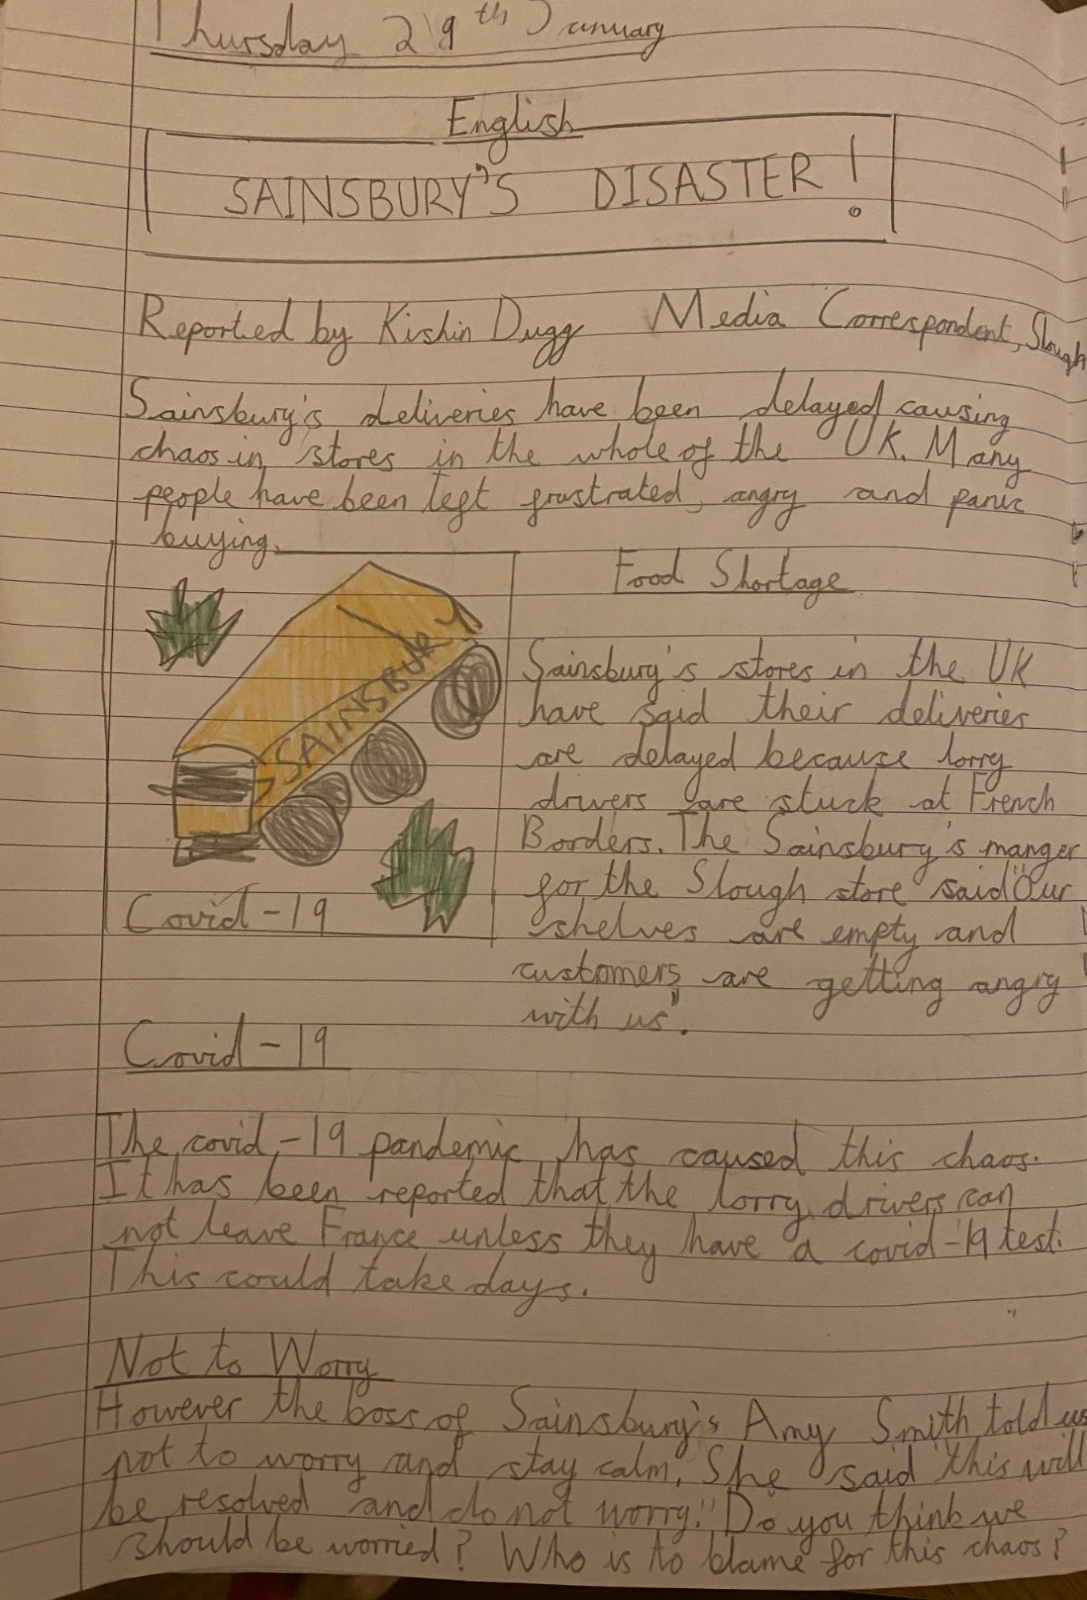 Thursday 29th January
English
SAINSBURY'S DISASTER!
Reported by Kishin Dugg Media Correspondent, Slough
Sainsbury's deliveries have been delayed causing
chaos in stores in the whole of the UK. Many
people have been left frustrated, angry and panic
buying.
SAINSBURY
Covid-19
Food Shortage
Sainsbury's stores in the UK
have said their deliveries
are delayed because lorry
drivers are stuck at French
Borders. The Sainsbury's manger
for the Slough store said "Our
shelves are empty and
customers are getting angry
with us".
Covid-19
The covid-19 pandemic has caused this chaos.
It has been reported that the lorry drivers can
not leave France unless they have a covid-19 test.
This could take days.
Not to Worry
However the boss of Sainsbury's Amy Smith told us
not to worry and stay calm. She said "this will
be resolved and do not worry." Do you think we
should be worried? Who is to blame for this chaos?